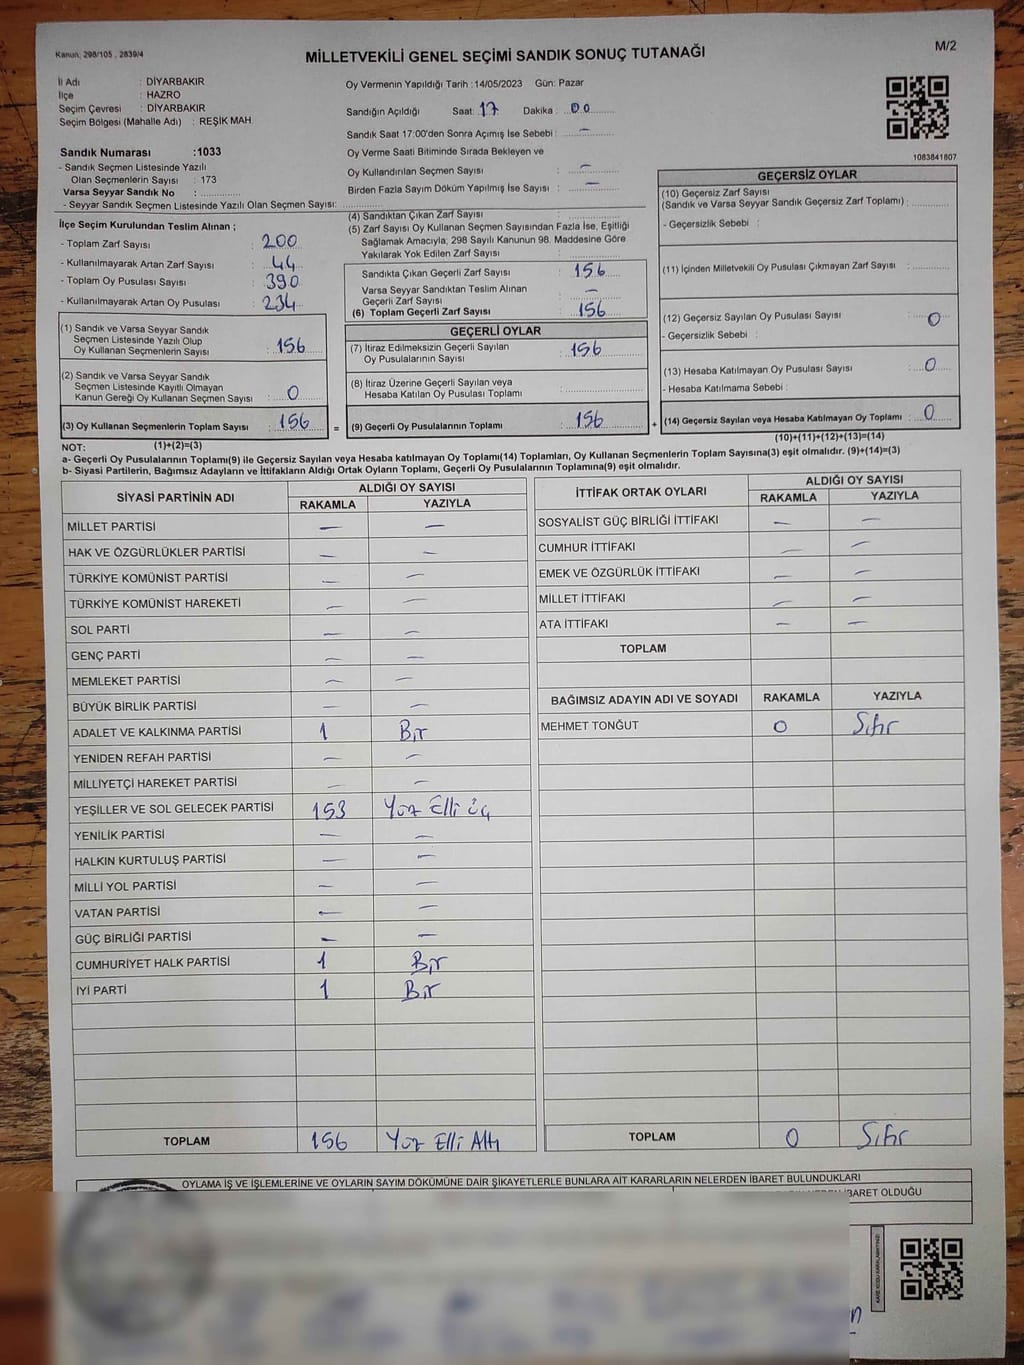 Kanun, 298/105 , 2839/4
MİLLETVEKİLİ GENEL SEÇİMİ SANDIK SONUÇ TUTANAĞI
M/2
İl Adı : DİYARBAKIR
İlçe : HAZRO
Seçim Çevresi : DİYARBAKIR
Seçim Bölgesi (Mahalle Adı) : REŞİK MAH.
Oy Vermenin Yapıldığı Tarih :14/05/2023 Gün: Pazar
Sandığın Açıldığı Saat: 17 Dakika : 00
Sandık Saat 17:00'den Sonra Açımış İse Sebebi : –
Oy Verme Saati Bitiminde Sırada Bekleyen ve
Oy Kullandırılan Seçmen Sayısı : –
Birden Fazla Sayım Döküm Yapılmış İse Sayısı : –
1083841807
Sandık Numarası :1033
- Sandık Seçmen Listesinde Yazılı
Olan Seçmenlerin Sayısı : 173
Varsa Seyyar Sandık No :
- Seyyar Sandık Seçmen Listesinde Yazılı Olan Seçmen Sayısı:
İlçe Seçim Kurulundan Teslim Alınan ;
- Toplam Zarf Sayısı : 200
- Kullanılmayarak Artan Zarf Sayısı : 44
- Toplam Oy Pusulası Sayısı : 390
- Kullanılmayarak Artan Oy Pusulası : 234
(1) Sandık ve Varsa Seyyar Sandık
Seçmen Listesinde Yazılı Olup
Oy Kullanan Seçmenlerin Sayısı : 156
(2) Sandık ve Varsa Seyyar Sandık
Seçmen Listesinde Kayıtlı Olmayan
Kanun Gereği Oy Kullanan Seçmen Sayısı : 0
(3) Oy Kullanan Seçmenlerin Toplam Sayısı : 156 =
(4) Sandıktan Çıkan Zarf Sayısı :
(5) Zarf Sayısı Oy Kullanan Seçmen Sayısından Fazla İse, Eşitliği
Sağlamak Amacıyla, 298 Sayılı Kanunun 98. Maddesine Göre
Yakılarak Yok Edilen Zarf Sayısı :
Sandıkta Çıkan Geçerli Zarf Sayısı : 156
Varsa Seyyar Sandıktan Teslim Alınan
Geçerli Zarf Sayısı : –
(6) Toplam Geçerli Zarf Sayısı : 156
GEÇERLİ OYLAR
(7) İtiraz Edilmeksizin Geçerli Sayılan
Oy Pusulalarının Sayısı : 156
(8) İtiraz Üzerine Geçerli Sayılan veya
Hesaba Katılan Oy Pusulası Toplamı :
(9) Geçerli Oy Pusulalarının Toplamı : 156 +
GEÇERSİZ OYLAR
(10) Geçersiz Zarf Sayısı
(Sandık ve Varsa Seyyar Sandık Geçersiz Zarf Toplamı) :
- Geçersizlik Sebebi :
(11) İçinden Milletvekili Oy Pusulası Çıkmayan Zarf Sayısı :
(12) Geçersiz Sayılan Oy Pusulası Sayısı : 0
- Geçersizlik Sebebi :
(13) Hesaba Katılmayan Oy Pusulası Sayısı : 0
- Hesaba Katılmama Sebebi :
(14) Geçersiz Sayılan veya Hesaba Katılmayan Oy Toplamı : 0
NOT: (1)+(2)=(3)
(10)+(11)+(12)+(13)=(14)
a- Geçerli Oy Pusulalarının Toplamı(9) ile Geçersiz Sayılan veya Hesaba katılmayan Oy Toplamı(14) Toplamları, Oy Kullanan Seçmenlerin Toplam Sayısına(3) eşit olmalıdır. (9)+(14)=(3)
b- Siyasi Partilerin, Bağımsız Adayların ve İttifakların Aldığı Ortak Oyların Toplamı, Geçerli Oy Pusulalarının Toplamına(9) eşit olmalıdır.
SİYASİ PARTİNİN ADI ALDIĞI OY SAYISI
RAKAMLA YAZIYLA
MİLLET PARTİSİ – –
HAK VE ÖZGÜRLÜKLER PARTİSİ – –
TÜRKİYE KOMÜNİST PARTİSİ – –
TÜRKİYE KOMÜNİST HAREKETİ – –
SOL PARTİ – –
GENÇ PARTİ – –
MEMLEKET PARTİSİ – –
BÜYÜK BİRLİK PARTİSİ – –
ADALET VE KALKINMA PARTİSİ 1 Bir
YENİDEN REFAH PARTİSİ – –
MİLLİYETÇİ HAREKET PARTİSİ – –
YEŞİLLER VE SOL GELECEK PARTİSİ 153 Yüz Elli üç
YENİLİK PARTİSİ – –
HALKIN KURTULUŞ PARTİSİ – –
MİLLİ YOL PARTİSİ – –
VATAN PARTİSİ – –
GÜÇ BİRLİĞİ PARTİSİ – –
CUMHURİYET HALK PARTİSİ 1 Bir
İYİ PARTİ 1 Bir
TOPLAM 156 Yüz Elli Altı
İTTİFAK ORTAK OYLARI ALDIĞI OY SAYISI
RAKAMLA YAZIYLA
SOSYALİST GÜÇ BİRLİĞİ İTTİFAKI – –
CUMHUR İTTİFAKI – –
EMEK VE ÖZGÜRLÜK İTTİFAKI – –
MİLLET İTTİFAKI – –
ATA İTTİFAKI – –
TOPLAM
BAĞIMSIZ ADAYIN ADI VE SOYADI RAKAMLA YAZIYLA
MEHMET TONĞUT 0 Sıfır
TOPLAM 0 Sıfır
OYLAMA İŞ VE İŞLEMLERİNE VE OYLARIN SAYIM DÖKÜMÜNE DAİR ŞİKAYETLERLE BUNLARA AİT KARARLARIN NELERDEN İBARET BULUNDUKLARI
İBARET OLDUĞU